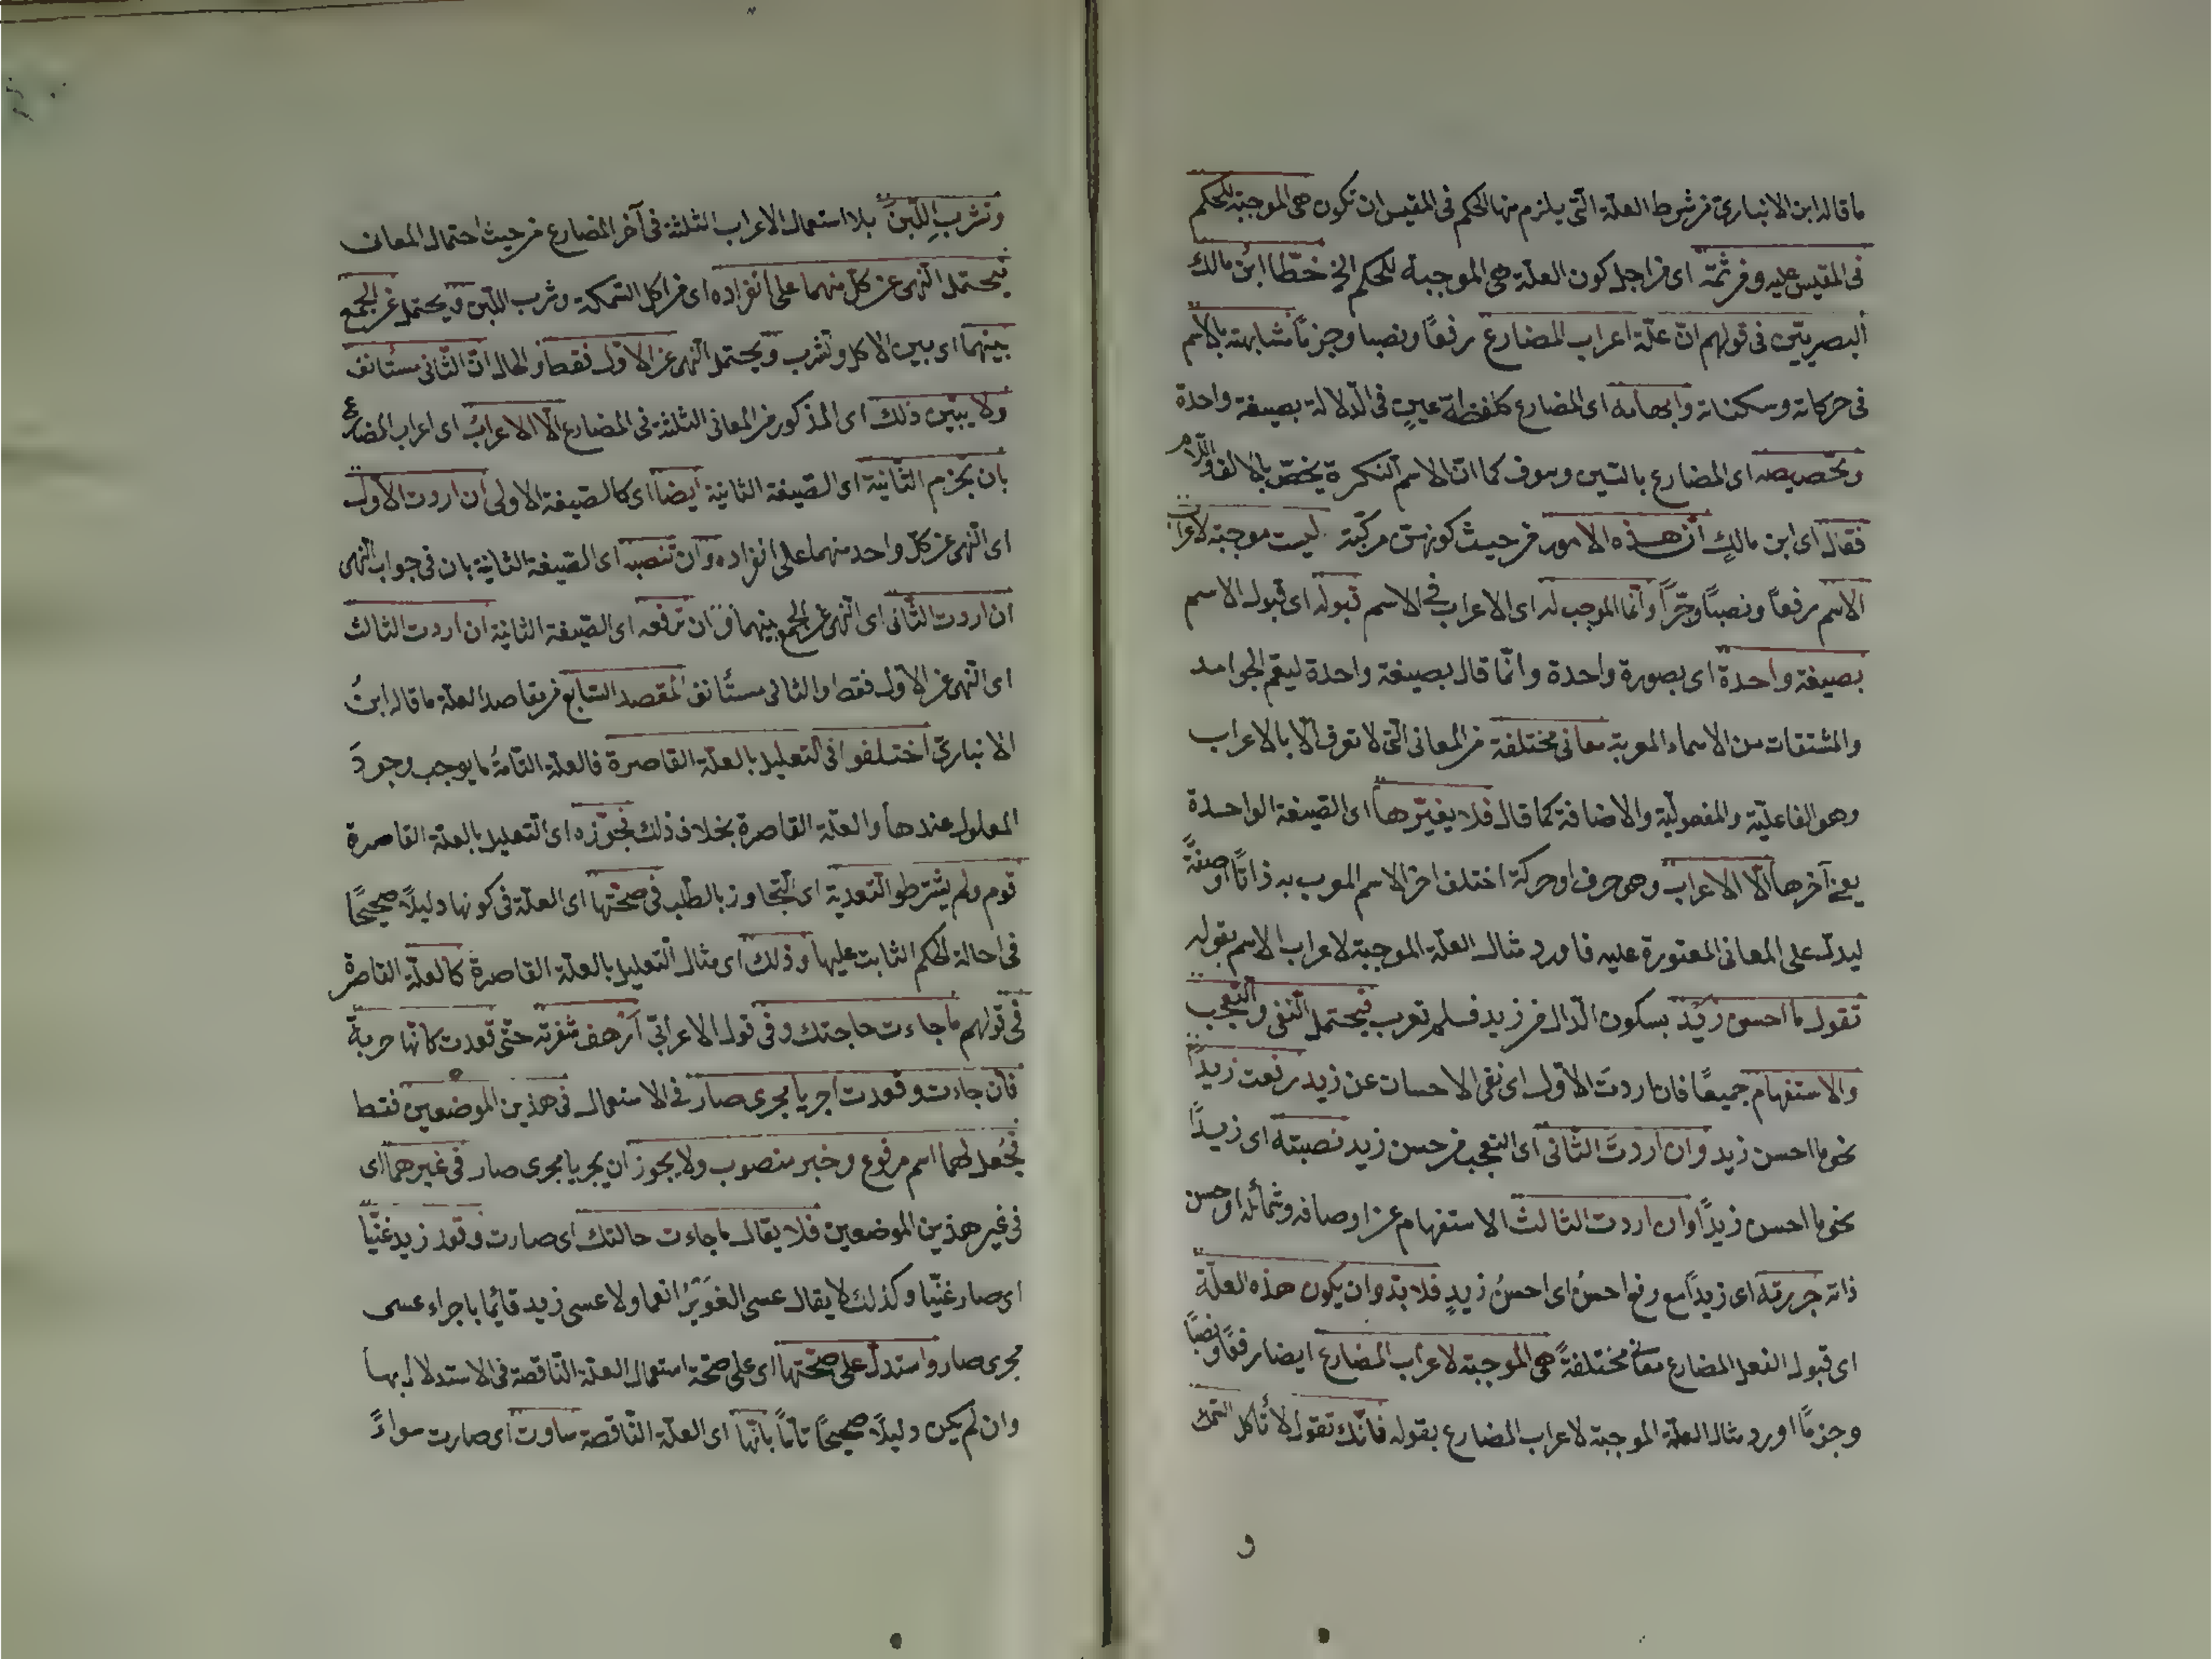 ما قاله ابن الانباري من شرط العلّة الّتي يلزم منها الحكم في المقيس ان تكون هي الموجبة للحكم
في المقيس عليه ومن ثمّة اى من اجل كون العلّة هي الموجبة للحكم الخ خطّا ابن مالك
البصريّين في قولهم انّ علّة اعراب المضارع رفعًا ونصبا وجزمًا مشابهته بالاسم
في حركاته وسكناته وابهامه اى المضارع كلفظة عينٍ في الدلالة بصيغة واحدة
وتخصيصه اى المضارع بالسّين وسوف كما انّ الاسم النكرة يخصّ بالالف واللام
فقال اى ابن مالكٍ انّ هذه الامور من حيث كونهنّ مركّبة ليست موجبة لاعراب
الاسم رفعًا ونصبًا وجرًّا وانّما الموجب له اى الاعراب في الاسم قبوله اى قبول الاسم
بصيغة واحدة اى بصورة واحدة وانّما قال بصيغة واحدة ليعمّ الجوامد
والمشتقات من الاسماء المعربة معانى مختلفة من المعانى الّتى لا تعرف الّا بالاعراب
وهو الفاعليّة والمفعوليّة والاضافة كما قال فلا يغيّرها اى الصّيغة الواحدة
يعنى آخرها الّا الاعراب وهي حرف او حركة اختلف اخر الاسم المعرب به ذاتًا او صفةً
ليدلّ على المعانى المعتورة عليه فاورد مثال العلّة الموجبة لاعراب الاسم بقوله
تقول ما احسن زيْد بسكون الدّال من زيد فلم تعرب فيحتمل النّفى والتعجب
والاستفهام جميعًا فان اردتَ الاوّل اى نفى الاحسان عن زيد رفعت زيدًا
نحو ما احسن زيد وان اردتَ الثّانى اى التعجب من حسن زيد نصبته اى زيدًا
نحو ما احسن زيدًا وان اردت الثالث الاستفهام عن اوصافه وشمائله او حسن
ذاته جررته اى زيدًا مع رفع احسنُ اى احسنُ زيدٍ فلا بدّ وان يكون هذه العلّة
اى قبول الفعل المضارع معانى مختلفةً هي الموجبة لاعراب المضارع ايضا رفعًا ونصبًا
وجزمًا اورد مثال العلّة الموجبة لاعراب المضارع بقوله فانّك تقول لا تأكل السّمك
و
وتشرب اللّبن بلا استعمال الاعراب الثلثة في آخر المضارع من حيث احتمال المعانى
فيحتمل النّهى عن كلّ منهما على انفراده اى من اكل السّمكة وشرب اللّبن ويحتمل عن الجمع
بينهما اى بين الاكل وتشرب ويحتمل النّهى عن الاوّل فقط والحال انّ الثّانى مستأنف
ولا يبيّن ذلك اى المذكور من المعانى الثلثة في المضارع الّا الاعرابُ اى اعراب المضارع
بان يجزم الثّانية اى الصّيغة الثانية ايضا اى كالصّيغة الاولى ان اردت الاوّل
اى النّهى عن كلّ واحد منهما على انفراده وان تنصبه اى الصّيغة الثانية بان في جواب النّهى
ان اردت الثّانى اى النّهى عن الجمع بينهما وان ترفعه اى الصّيغة الثانية ان اردت الثالث
اى النّهى عن الاوّل فقط والثانى مستأنف المقصد السّابع من مقاصد العلّة ما قاله ابنُ
الانباريّ اختلفوا في التعليل بالعلّة القاصرة فالعلّة التّامةُ ما يوجب وجودَ
المعلول عندها والعلّة القاصرة بخلاف ذلك فجوّزه اى التّعليل بالعلّة القاصرة
قوم ولم يشترطوا التعدية اى التّجاوز بالطّلب في صحّتها اى العلّة في كونها دليلًا صحيحًا
في احالة الحكم الثابت عليها وذلك اى مثال التّعليل بالعلّة القاصرة كالعلّة القاصرة
في قولهم ما جاءت حاجتك وفي قول الاعرابّي ارهف شفرته حتّى قعدت كانّها حربةٌ
فان جاءت وقعدت اجريا مجرى صار في الاستعمال في هذين الموضعين فقط
فجُعل لهما اسم مرفوع وخبر منصوب ولا يجوز ان يجريا مجرى صار في غيرهما اى
في غير هذين الموضعين فلا يقال ما جاءت حالتك اى صارت وقعد زيد غنيًّا
اى صار غنيًّا وكذلك لا يقال عسى الغُوَيْرُ انعما ولا عسى زيد قائمًا باجراء عسى
مجرى صار واستدلّ على صحّتها اى على صحّة استعمال العلّة النّاقصة في الاستدلال بها
وان لم يكن دليلًا صحيحًا تامًّا بانّها اى العلّة النّاقصة ساوت اى صارت سواءً